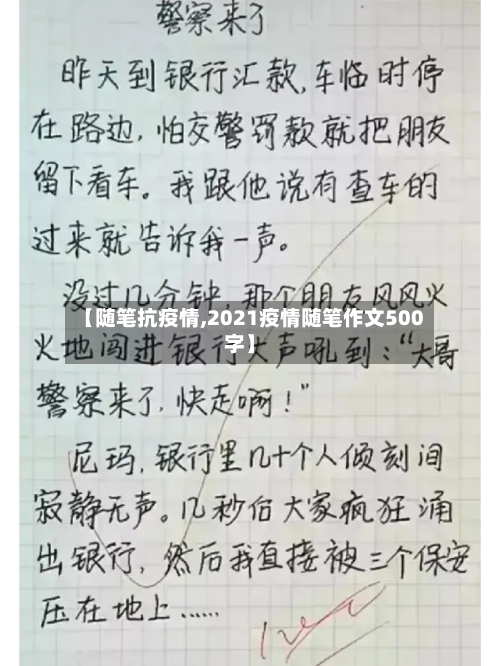 警察来了
昨天到银行汇款,车临时停
在路边,怕交警罚款就把朋友
留下看车。我跟他说有查车的
过来就告诉我一声。
没过几分钟,那个朋友风风火
【随笔抗疫情,2021疫情随笔作文500
字】
火地闯进银行大声吼到:“大哥
警察来了,快走啊!”
尼玛,银行里几十个人倾刻间
寂静无声。几秒后大家疯狂涌
出银行,然后我直接被三个保安
压在地上……